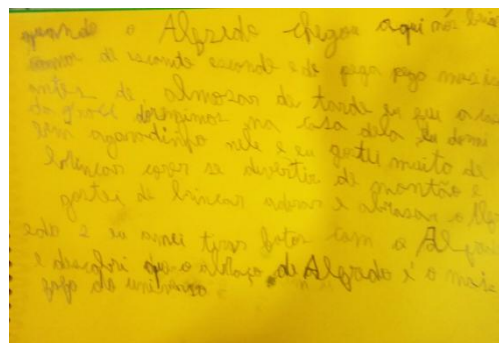 quando o Alfredo chegou aqui nós brin
camos de esconde esconde e de pega pega mas is
antes de almosar de tarde eu
dormimos na casa dela eu dormi
agarradinha nele e eu gostei muito de
brincar e se divertir de montão e
gostei de brincar adorar e abrasar o Alf
edo e eu amei tirar fotos com o Alfre
e descobri que o abraço de Alfredo é o mais
fofo do universo